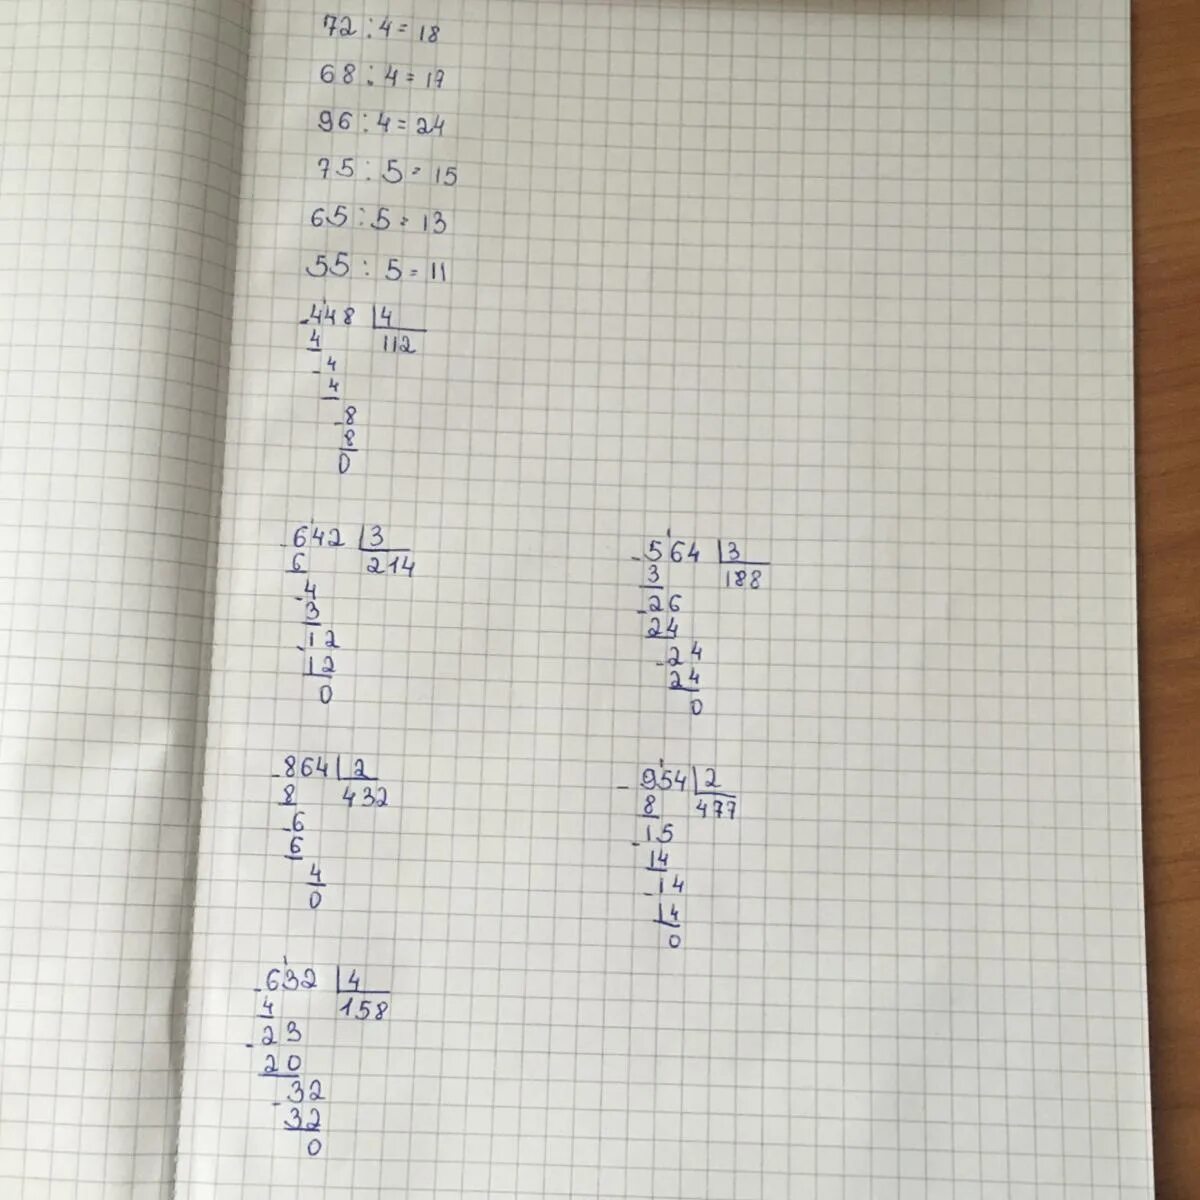 72 : 4 = 18
68 : 4 = 17
96 : 4 = 24
75 : 5 = 15
65 : 5 = 13
55 : 5 = 11
-448 | 4
4 112
-4
4
-8
8
0
-642 | 3
6 214
-4
3
-12
12
0
-564 | 3
3 188
-26
24
-24
24
0
-864 | 2
8 432
-6
6
4
0
-954 | 2
8 477
-15
14
-14
14
0
-632 | 4
4 158
-23
20
-32
32
0